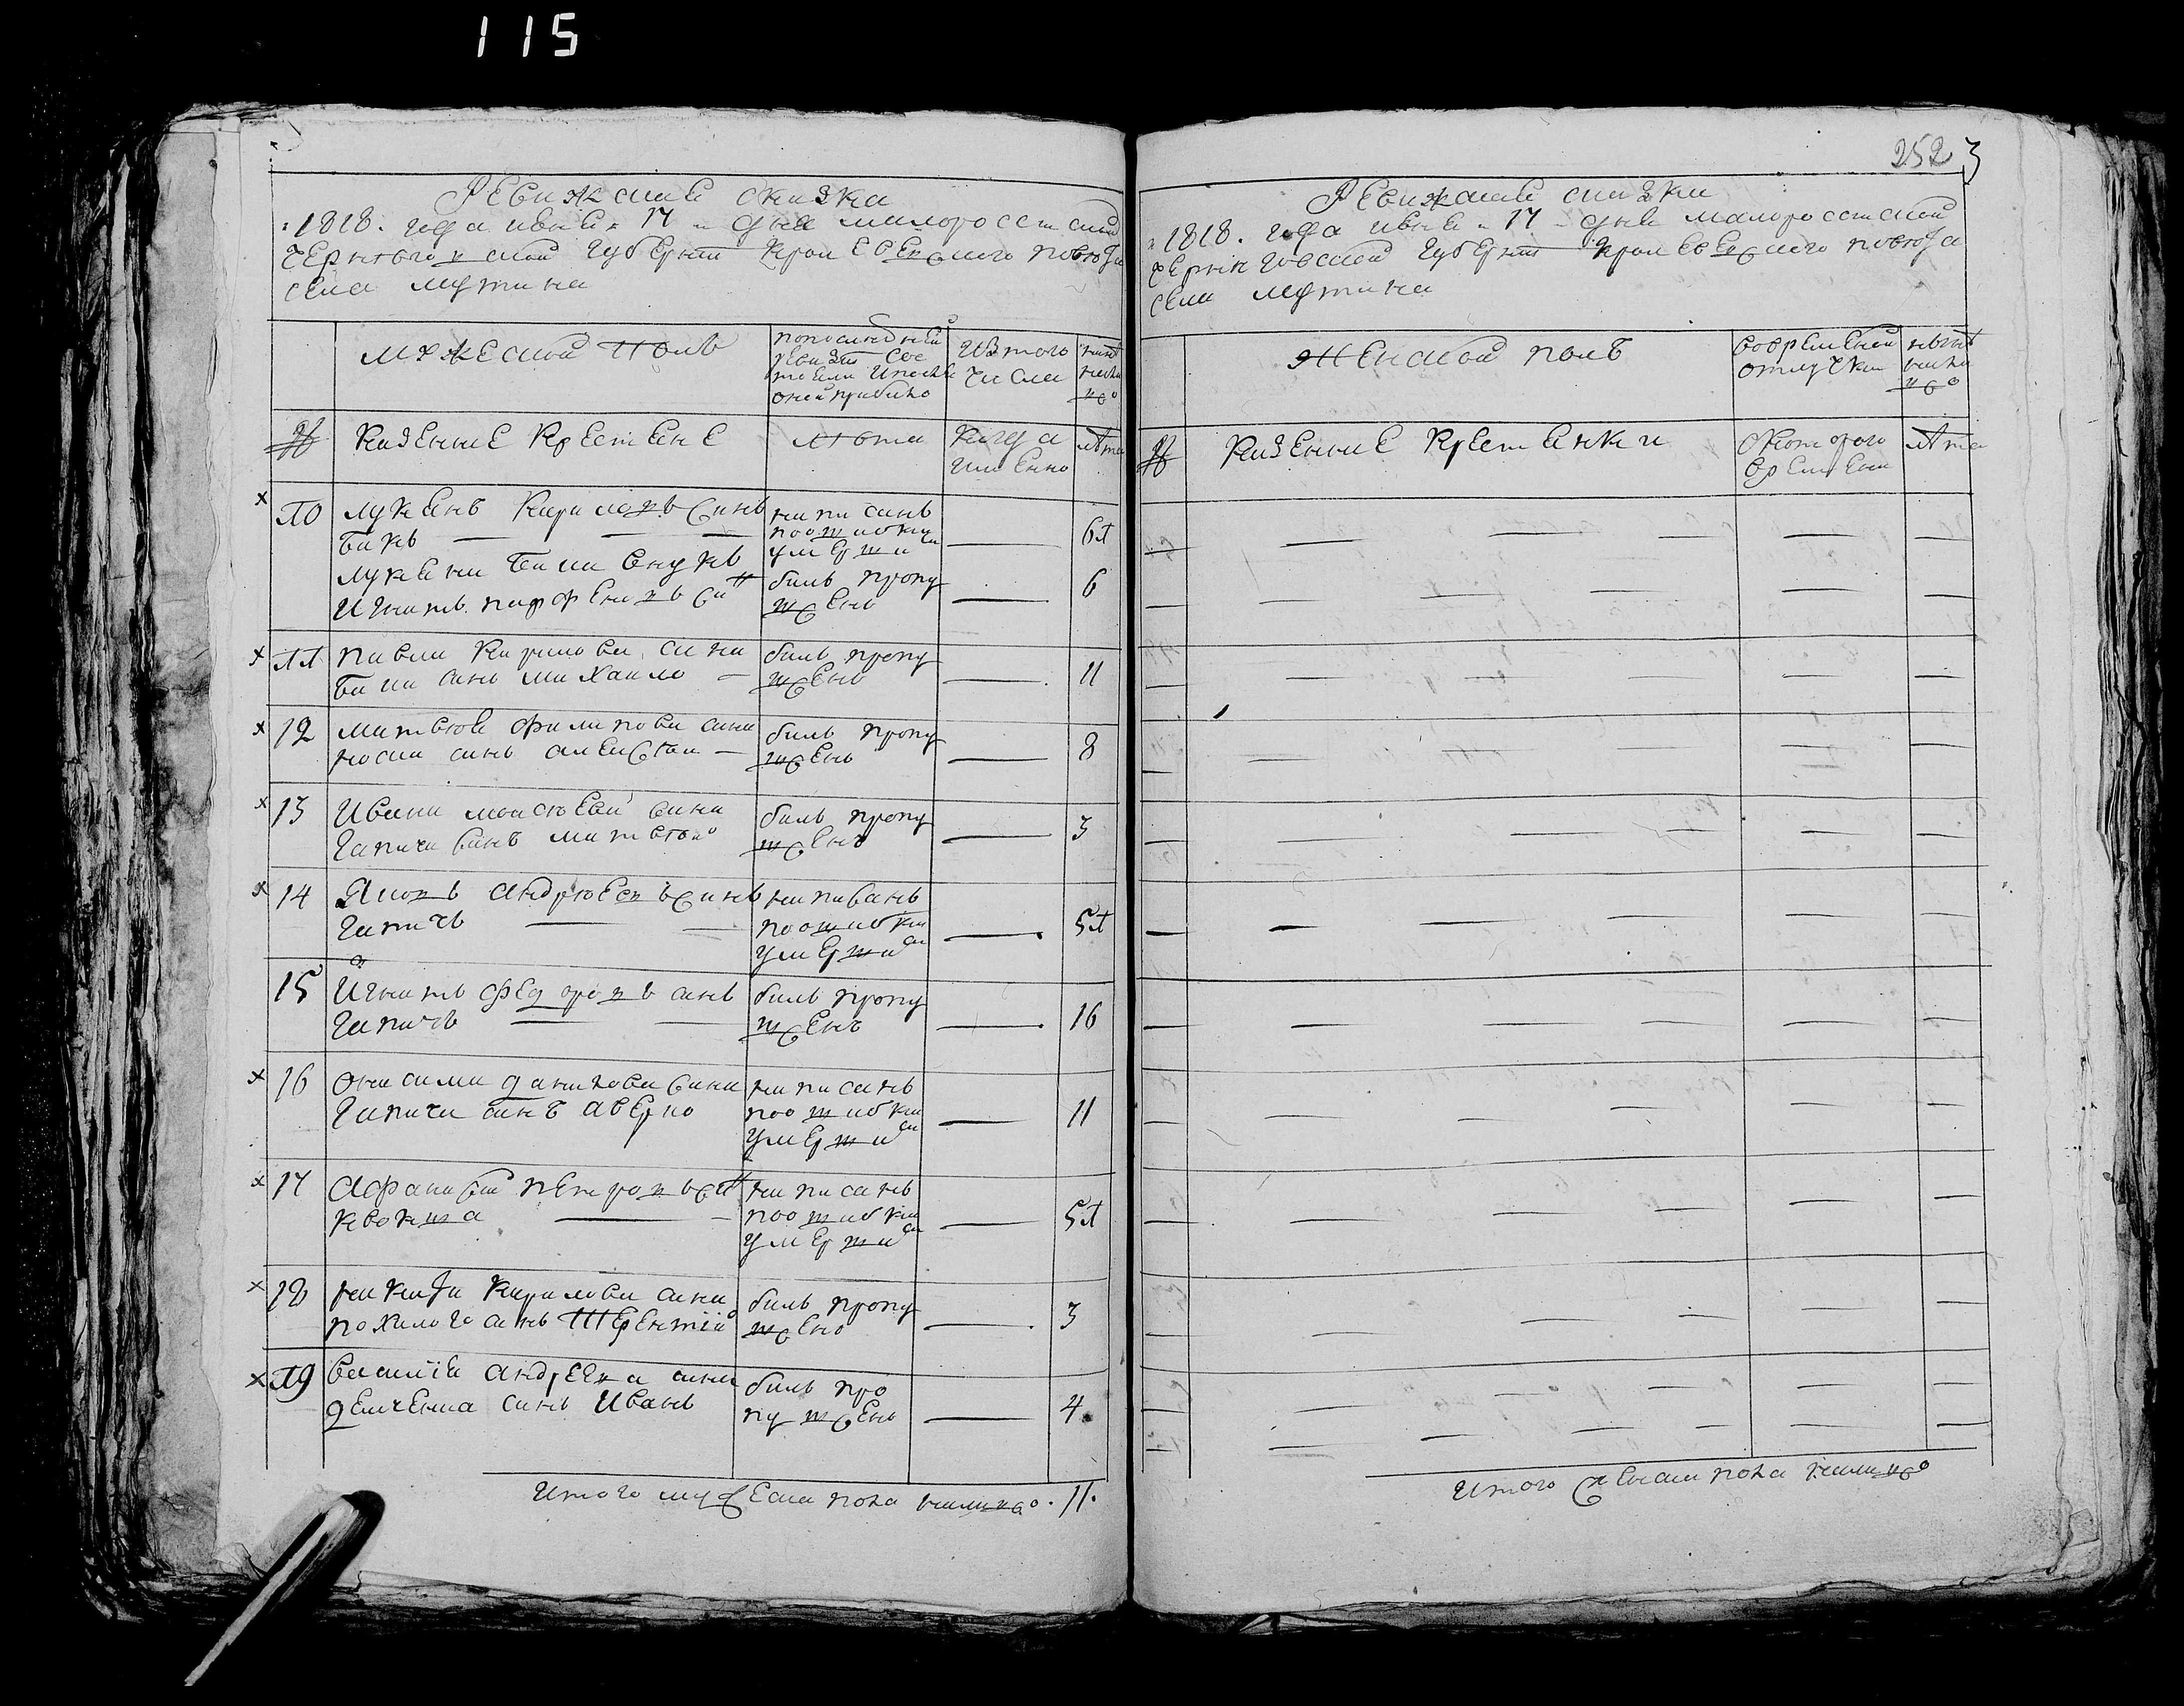 115
Ревижская сказка
1818. года июня 17 дня малоросийской
Черниговской губернии Кролевецкого повета
села Мутина
Мужеской полъ
по последней
ревизіи сос
тояли и после
оной прибыло
Изтого
числа
ныне
нали
цо
№
Казенние Крестяне
лета
Когда
именно
лета
10
Лукянъ Кириловъ синъ
Бакъ
написанъ
поошибки
умершим
61
Лукяна Бака внукъ
Игнатъ Парфеновъ син
билъ пропу
щенъ
6
11
Павла Кирилова сина
Бака синъ Михайло
билъ пропу
щенъ
11
12
Матвея Филипова сина
Носка синъ Алексей
билъ пропу
щенъ
8
13
Ивана Моисеева сина
Гапича синъ Матвей
билъ пропу
щенъ
3
14
Яковъ Андреевъ синъ
Гапичъ
написанъ
поошибки
умершим
51
15
Игнатъ Федоровъ синъ
Гапичъ
билъ пропу
щенъ
16
16
Онисима Данилова сина
Гапича синъ Аверко
написанъ
поошибки
умершим
11
17
Афанасий Петровъ син
Квокша
написанъ
поошибки
умершим
51
18
Никити Кирилова сина
Похилого синъ Терентій
билъ пропу
щено
3
19
Василія Андреева сина
Демченка синъ Иванъ
билъ про
пущенъ
4
Итого мужеска пола налицо 11.
252
3
Ревижская сказка
1818. года июня 17 дня малоросийской
Черниговской губернии Кролевецкого повета
села Мутина
Женской полъ
вовременной
отлучки
ныне
нали
цо
№
Казенние Крестянки
Скоторого
времени
лета
Итого женска пола налицо